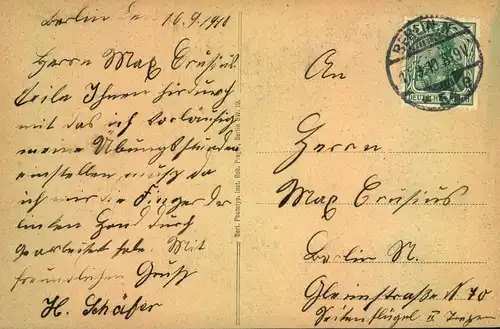 Berlin den 16.9.1910
Herrn Max Crusius
teile Ihnen hirdurch
mit das ich vorläufig
meine Übungsstunden
einstellen muß da
ich mir die Finger der
linken Hand durch
gearbeitet habe. Mit
freundlichen Gruß
H. Schäfer
Berl. Phototyp. Inst. Rob. Prager, Berlin SW. 19.
BERLIN
An
Herrn
Max Crusius
Berlin N.
Gleimstraße N 70
Seitenflügel II Treppen